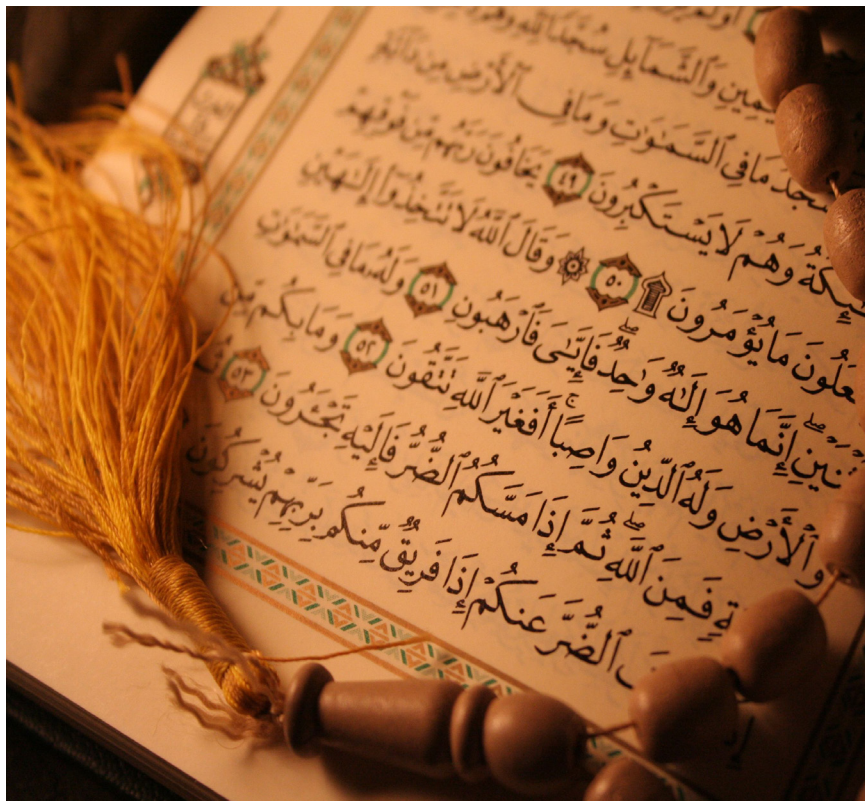 وَٱلشَّمَآئِلِ سُجَّدًا لِّلَّهِ وَهُمْ
مَا فِى ٱلسَّمَٰوَٰتِ وَمَا فِى ٱلْأَرْضِ مِن دَآبَّةٍ
وَهُمْ لَا يَسْتَكْبِرُونَ ٤٩ يَخَافُونَ رَبَّهُم مِّن فَوْقِهِمْ
مَا يُؤْمَرُونَ ۩ ٥٠ ۞ وَقَالَ ٱللَّهُ لَا تَتَّخِذُوٓا۟ إِلَٰهَيْنِ
ٱثْنَيْنِ ۖ إِنَّمَا هُوَ إِلَٰهٌ وَٰحِدٌ ۖ فَإِيَّٰىَ فَٱرْهَبُونِ ٥١ وَلَهُۥ مَا فِى ٱلسَّمَٰوَٰتِ
وَٱلْأَرْضِ وَلَهُ ٱلدِّينُ وَاصِبًا ۚ أَفَغَيْرَ ٱللَّهِ تَتَّقُونَ ٥٢ وَمَا بِكُم مِّن
فَمِنَ ٱللَّهِ ۖ ثُمَّ إِذَا مَسَّكُمُ ٱلضُّرُّ فَإِلَيْهِ تَجْـَٔرُونَ ٥٣
ٱلضُّرَّ عَنكُمْ إِذَا فَرِيقٌ مِّنكُم بِرَبِّهِمْ يُشْرِكُونَ